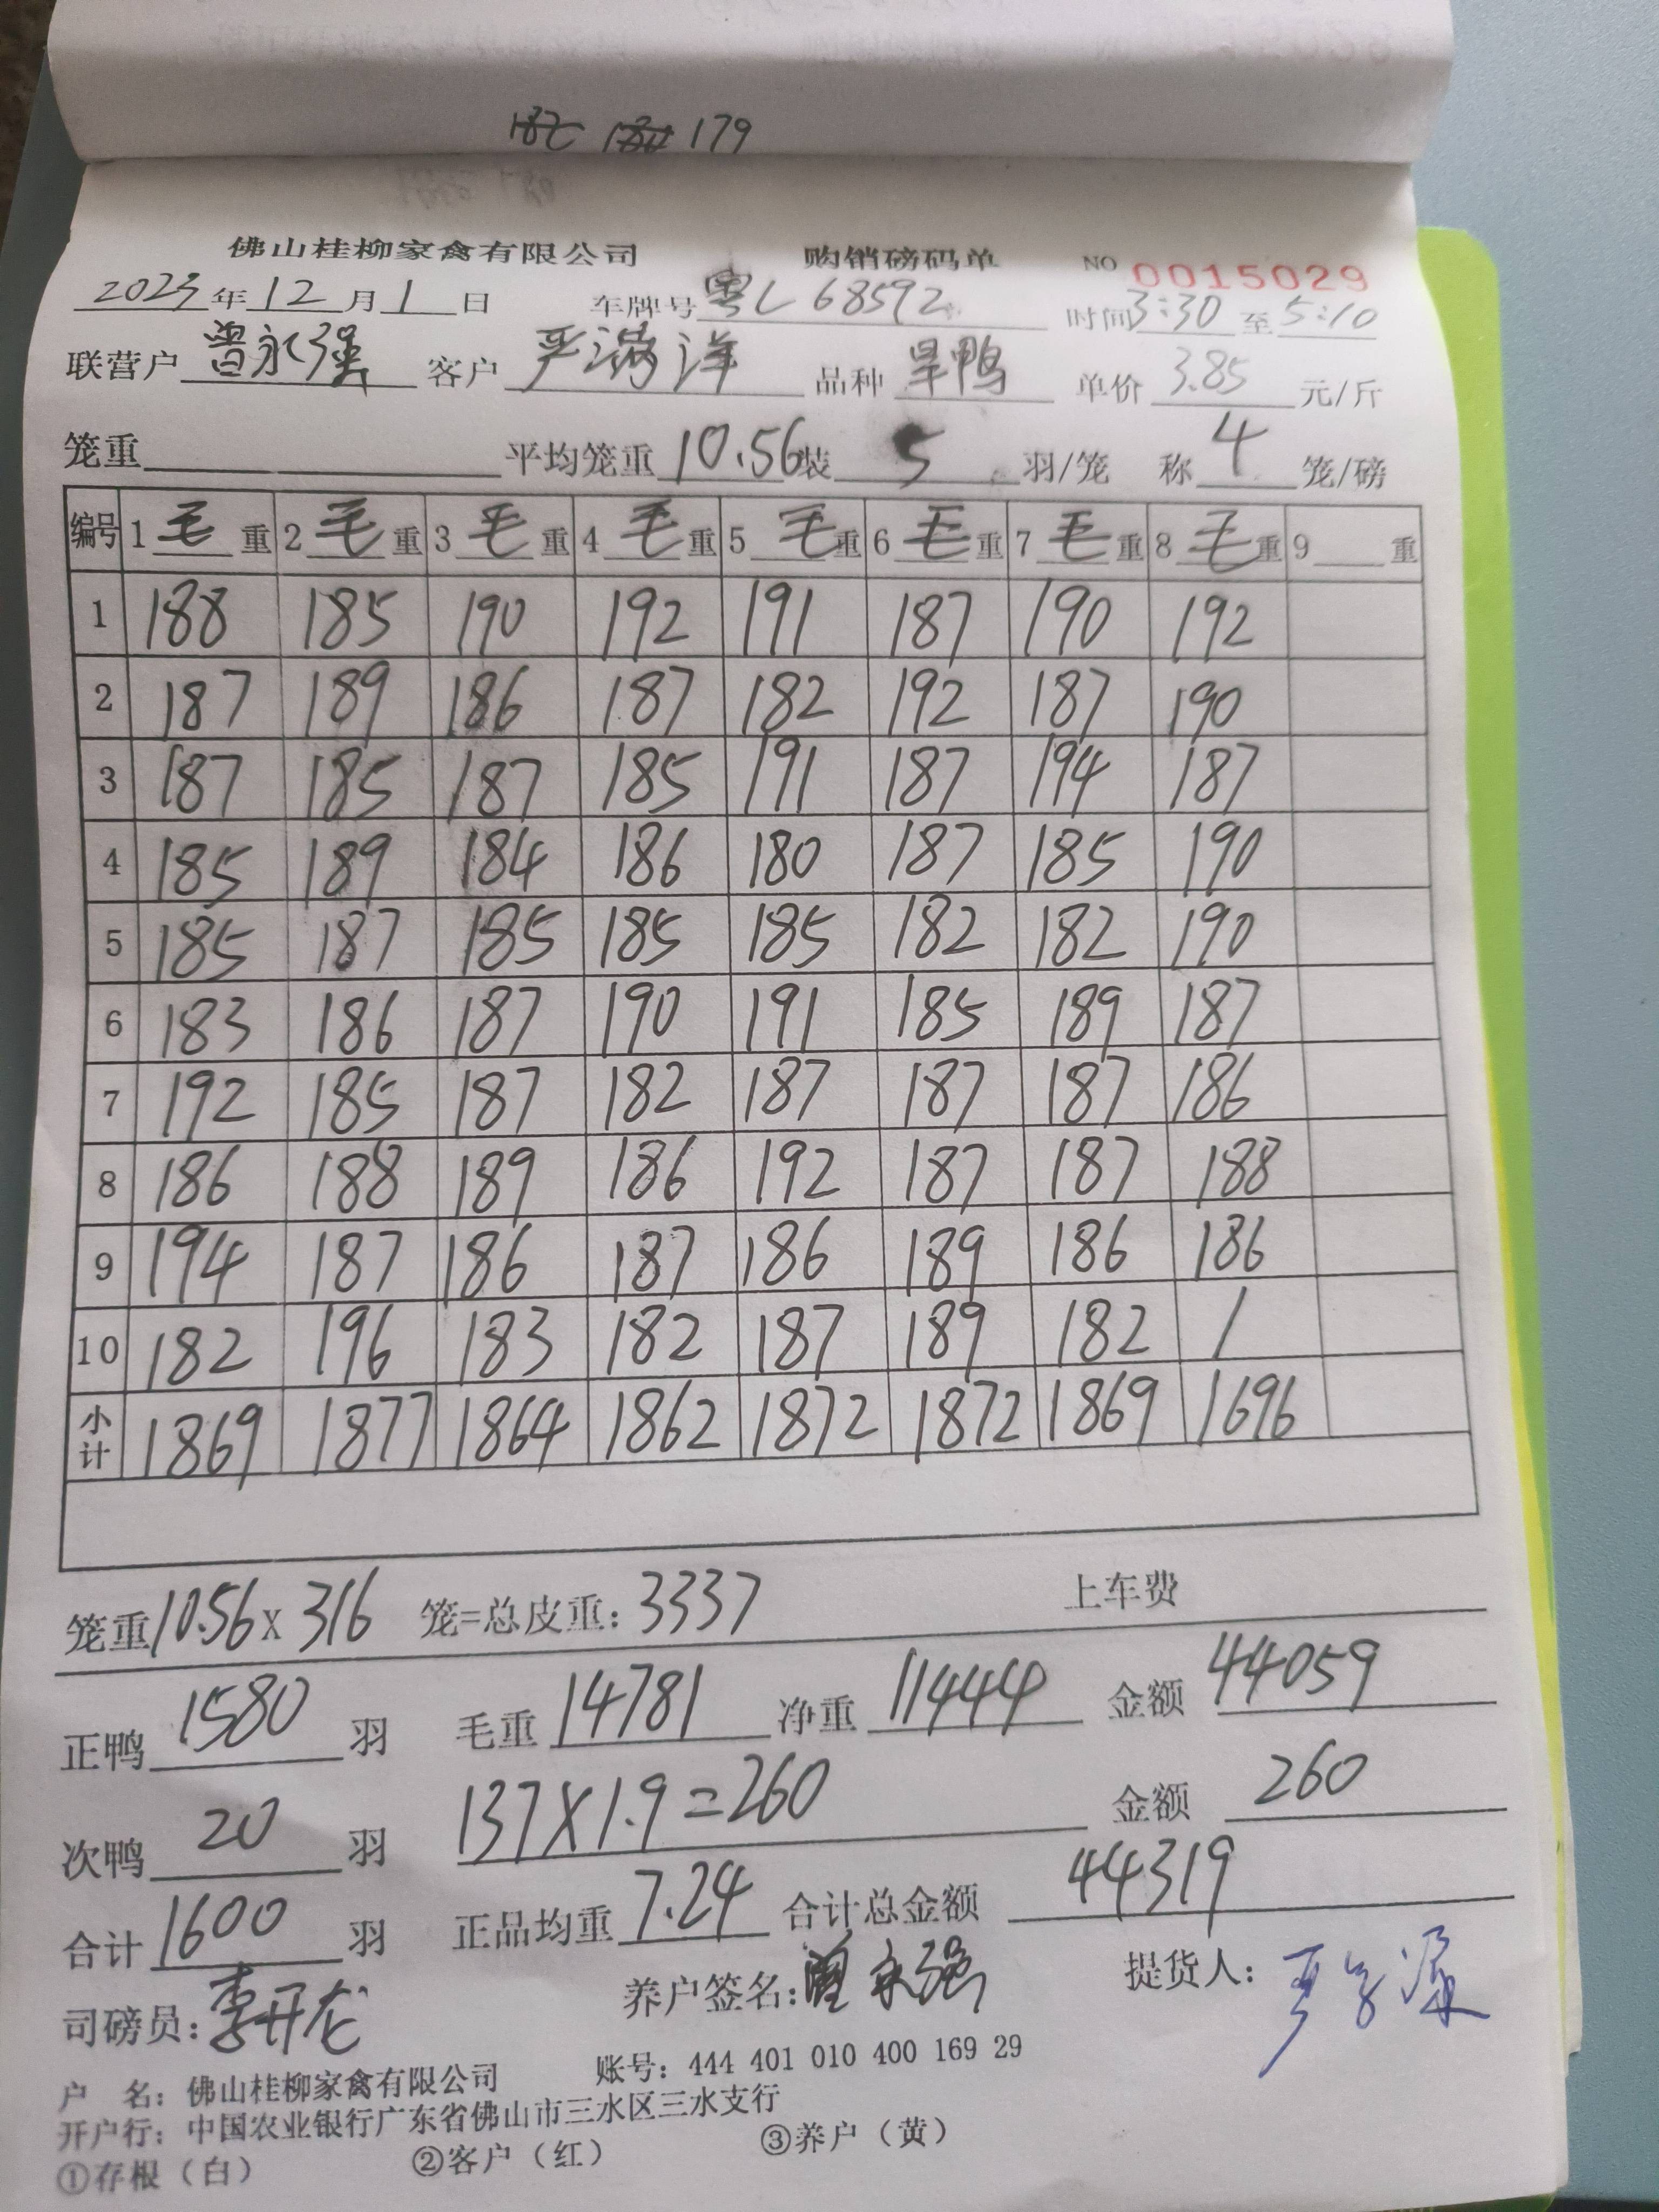 179
佛山桂柳家禽有限公司 购销磅码单 NO 0015029
2023年12月1日 车牌号粤L68592 时间3:30至5:10
联营户 曾永强 客户 严满洋 品种 旱鸭 单价 3.85 元/斤
笼重 平均笼重 10.56 装 5 羽/笼 称 4 笼/磅
编号 1 毛 重 2 毛 重 3 毛 重 4 毛 重 5 毛 重 6 毛 重 7 毛 重 8 毛 重 9 重
1 188 185 190 192 191 187 190 192
2 187 189 186 187 182 192 187 190
3 187 185 187 185 191 187 194 187
4 185 189 184 186 180 187 185 190
5 185 187 185 185 185 182 182 190
6 183 186 187 190 191 185 189 187
7 192 185 187 182 187 187 187 186
8 186 188 189 186 192 187 187 188
9 194 187 186 187 186 189 186 186
10 182 196 183 182 187 189 182 /
小计 1869 1877 1864 1862 1872 1872 1869 1696
笼重10.56 x 316 笼=总皮重: 3337 上车费
正鸭 1580 羽 毛重 14781 净重 11444 金额 44059
次鸭 20 羽 137X1.9=260 金额 260
合计 1600 羽 正品均重 7.24 合计总金额 44319
司磅员: 李开龙 养户签名: 曾永强 提货人:
户 名: 佛山桂柳家禽有限公司 账号: 444 401 010 400 169 29
开户行: 中国农业银行广东省佛山市三水区三水支行
①存根(白) ②客户(红) ③养户(黄)